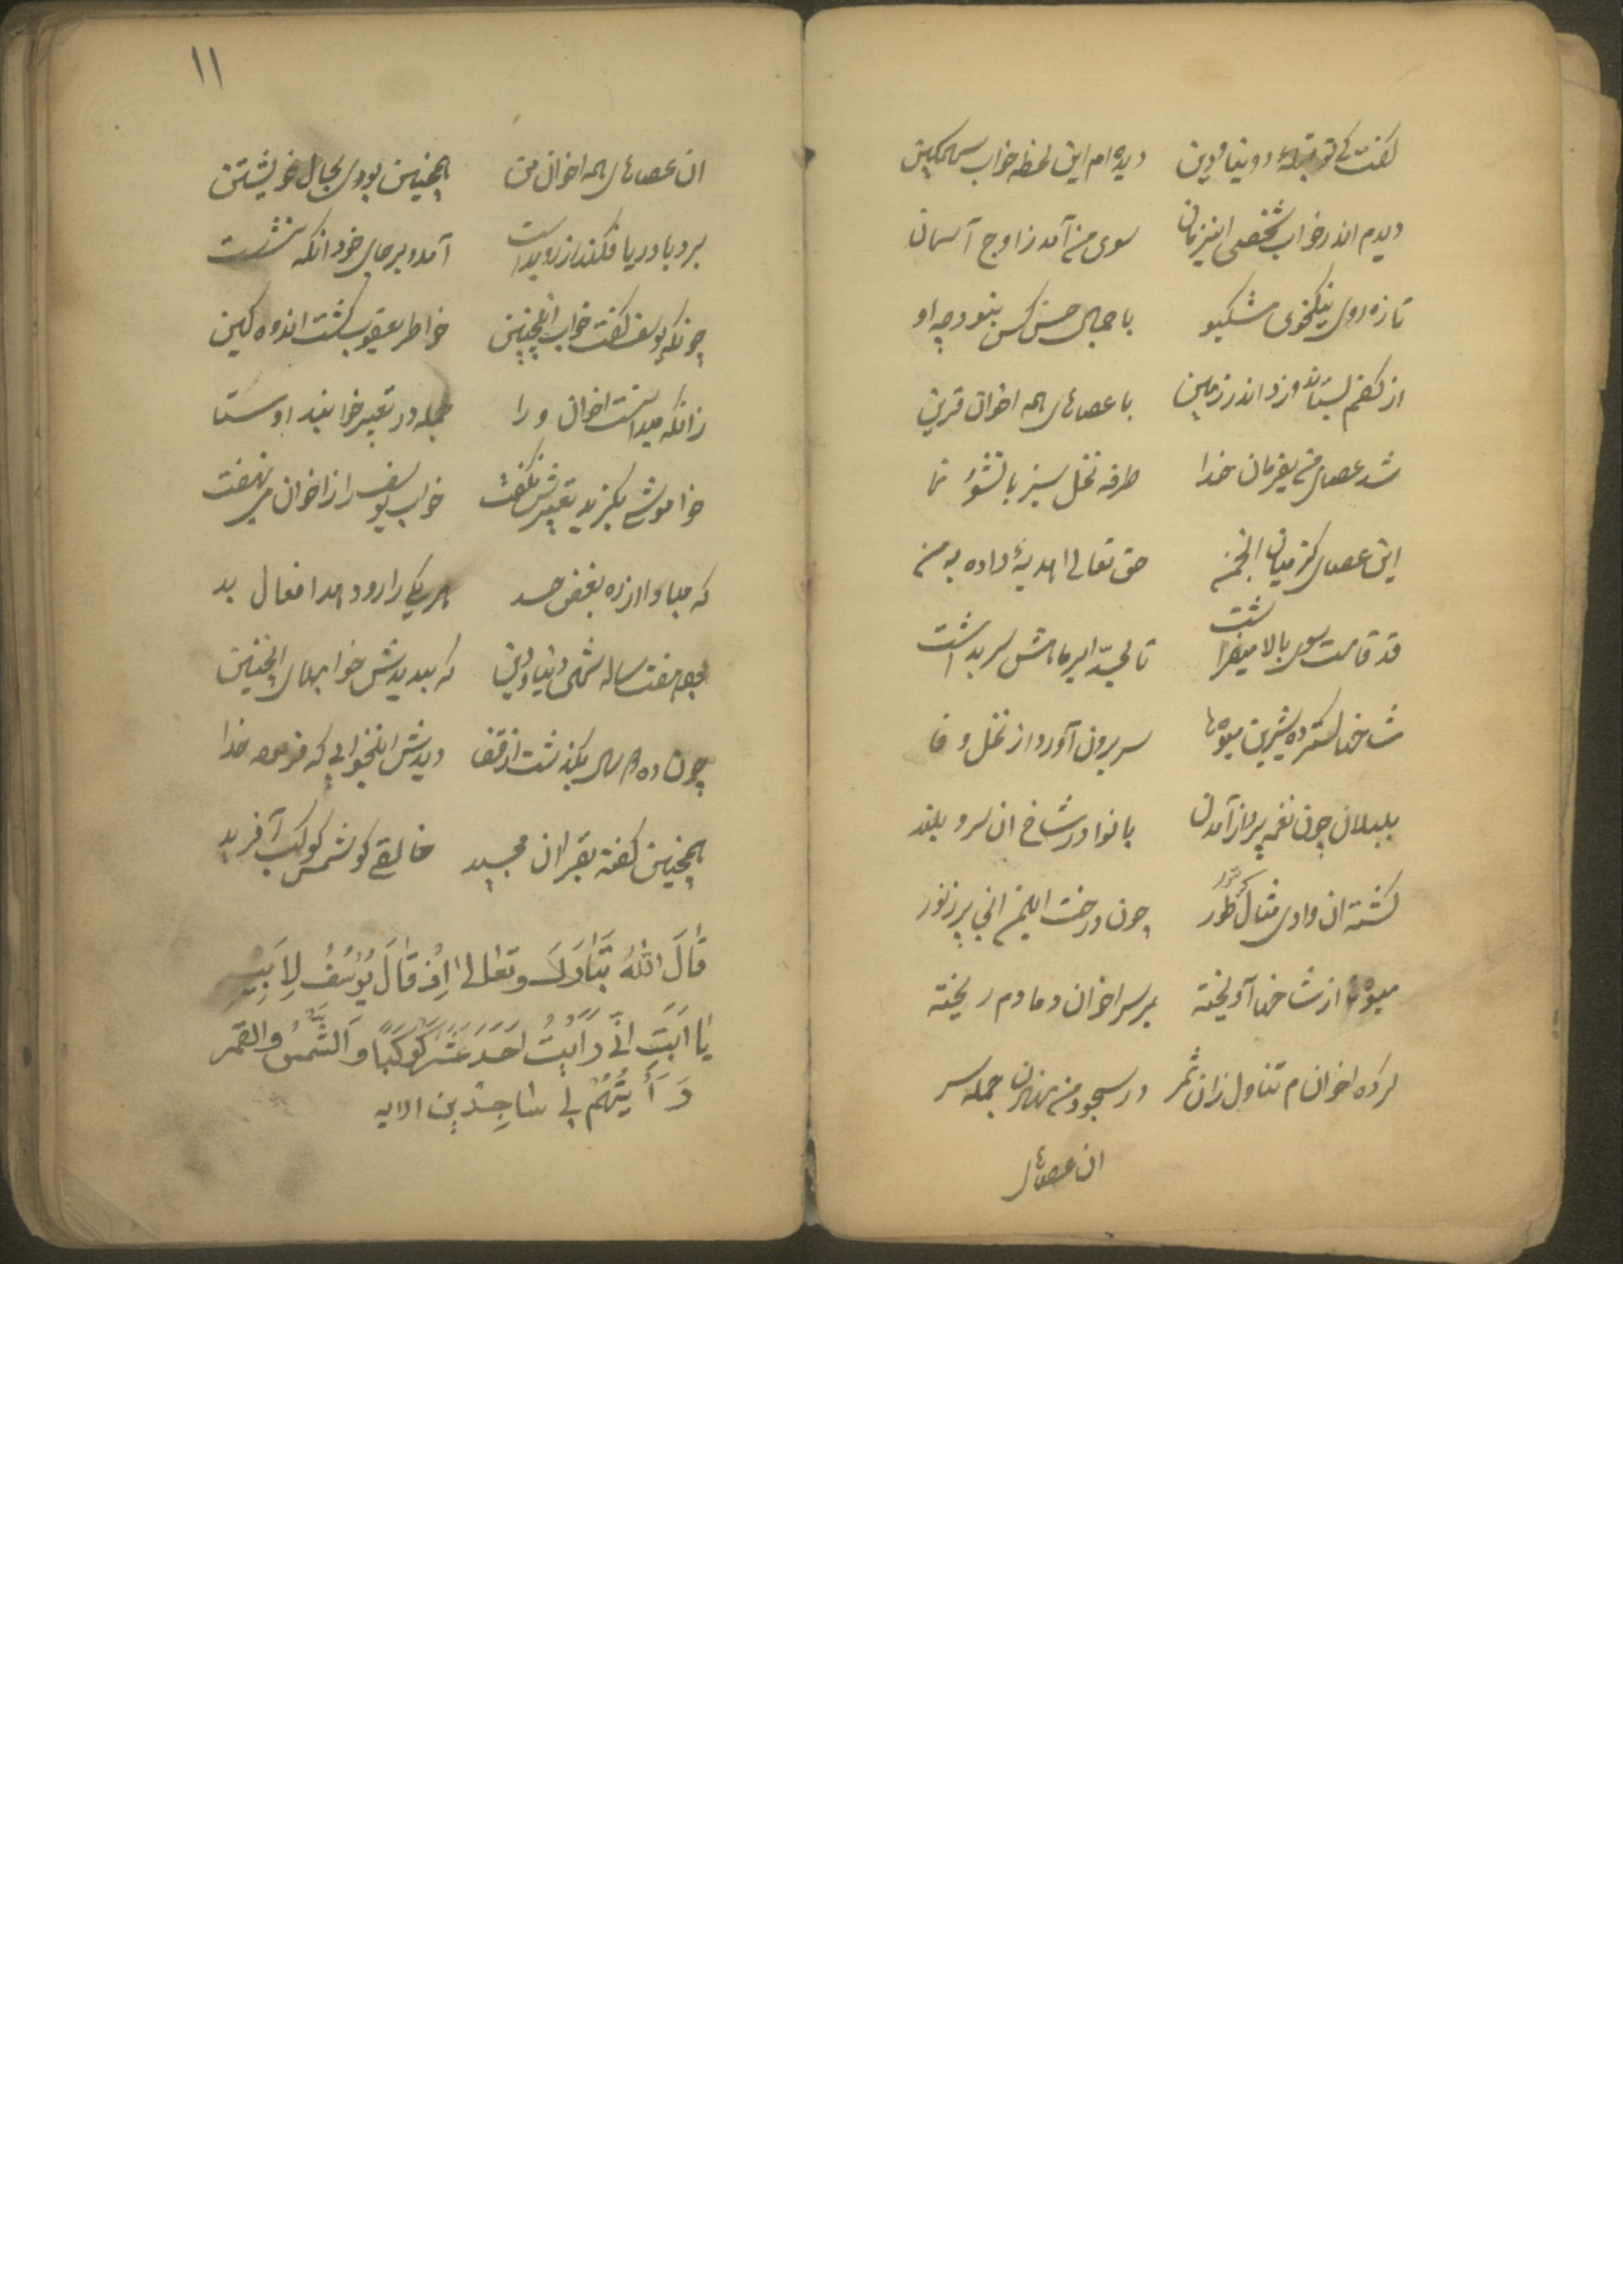 گفت کے تو قبلهٔ دنیا و دین دیده ام این لحظه خواب سهمکین
دیدم اندر خواب شخصی اینزمان سوی من آمد ز اوج آسمان
تازه روی نیکخوی مشکبو با جمال حسن کس نبود چه او
از کفم بستاند و زد اندر زمین با عصاهای همه اخوان قرین
شد عصای من بفرمان خدا طرفه نخل سبز با نشو نما
این عصای کز میان انجمن حق تعالی هدیهٔ داده به من
قد قامت سوی بالا میفراشت تا بحدّ ابر هامش سر بداشت
شاخها گسترده شیرین میوها سر برون آورد از نخل وفا
بلبلان چون نغمه پرداز آمدن با نوا در شاخ ان سرو بلند
گشته ان وادی مثال کوه طور چون درخت ایمن انی پر ز نور
میوها از شاخها آویخته بر سر اخوان دمادم ریخته
کرده اخوانم تناول زان ثمر در سجود من نهادن جمله سر
ان عصاهای
۱۱
ان عصاهای همه اخوان من همچنین بودی بحال خویشتن
برد باد دریا فکند از رو براست آمد و بر جای خود انکه نشست
چونکه یوسف گفت خواب اینچنین خواطر یعقوب گشت اندوه کین
زانکه میدانست اخوان ورا جمله در تعبیر خوابند اوستا
خواموشے بگزید تعبیرش نگفت خواب یوسف را ز اخوان می نهفت
که مبادا از ره بغض حسد هر یکے را رو دهد افعال بد
بود هفت ساله شهی دنیا و دین که بدیدش خوابهای اینچنین
چون ده دو سال بگذشت از قضا دیدش اینخوابی که فرموده خدا
همچنین گفته بقران مجید خالقے کو شمس کوکب آفرید
قَالَ اللهُ تَبَارَكَ وتعالى اِذْ قَالَ يُوْسُفُ لِاَبِيْهِ
يَا اَبَتِ اِنّي رَاَيْتُ اَحَدَ عَشَرَ كَوْكَبًا وَالشَّمْسَ والقمر
رَأَيْتُهُمْ لِي سَاجِدِيْنَ الايه